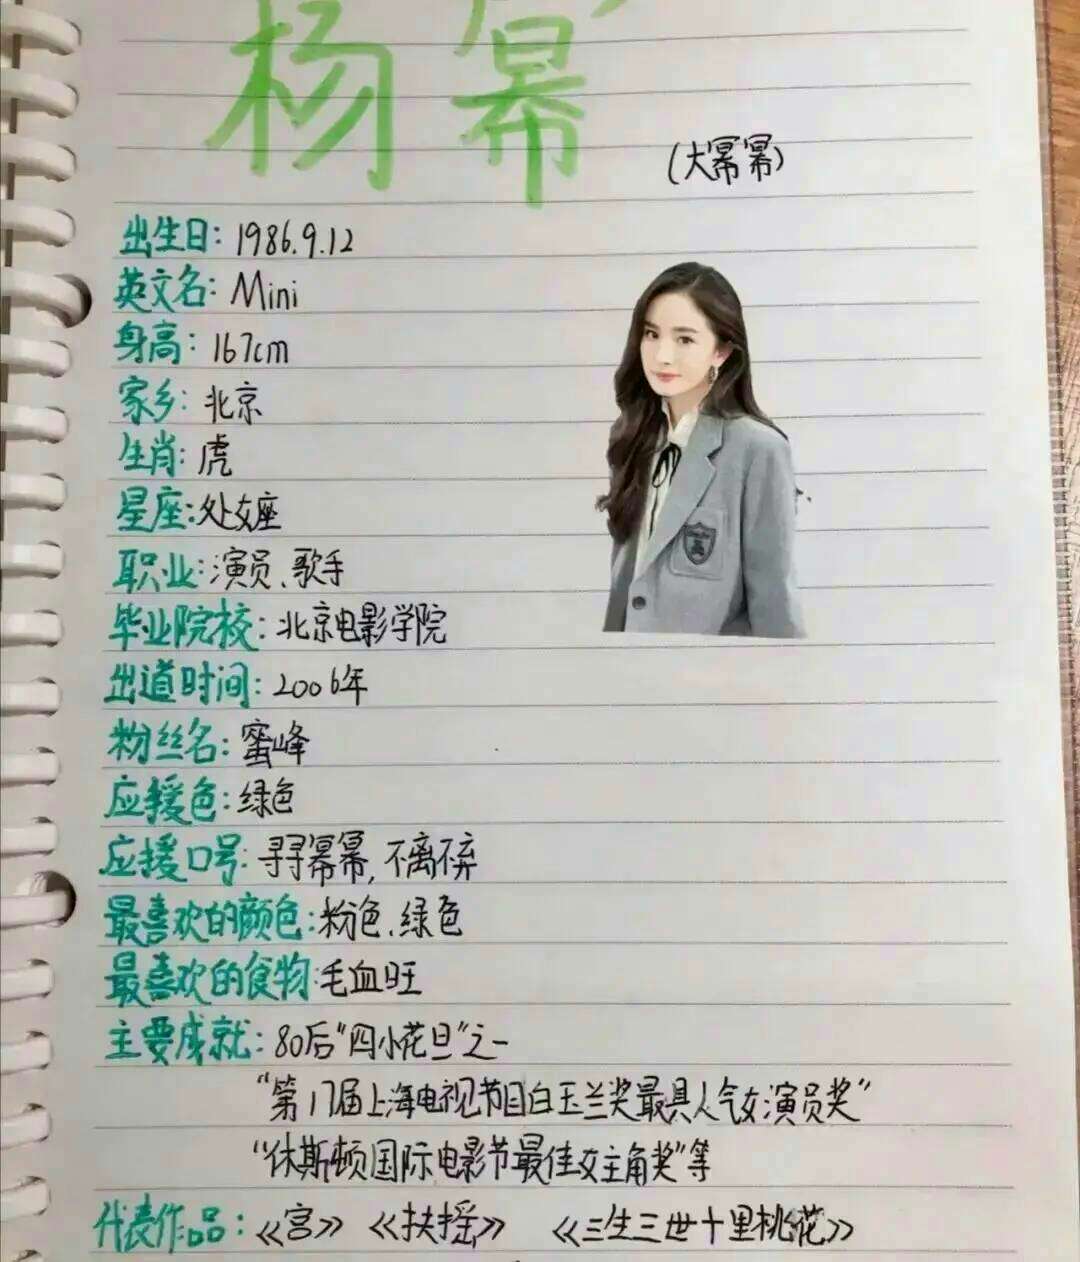 杨幂
(大幂幂)
出生日: 1986.9.12
英文名: Mini
身高: 167cm
家乡: 北京
生肖: 虎
星座: 处女座
职业: 演员、歌手
毕业院校: 北京电影学院
出道时间: 2006年
粉丝名: 蜜峰
应援色: 绿色
应援口号: 寻寻幂幂, 不离不弃
最喜欢的颜色: 粉色、绿色
最喜欢的食物: 毛血旺
主要成就: 80后"四小花旦"之一
"第17届上海电视节目白玉兰奖最具人气女演员奖"
"休斯顿国际电影节最佳女主角奖"等
代表作品: 《宫》 《扶摇》 《三生三世十里桃花》